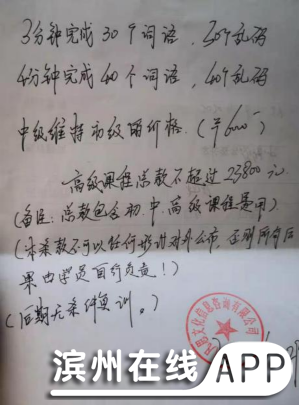 3分钟完成30个词语，30个乱码
4分钟完成40个词语，40个乱码
中级维持初级的价格。(￥600
高级课程总款不超过23800元
(备注:总款包含初.中.高级课程费用)
(本条款不可以任何形式对外公布，否则所有后
果由学员自行负责！)
(后期无条件复训。)
文化信息咨询有限公司
滨州在线APP